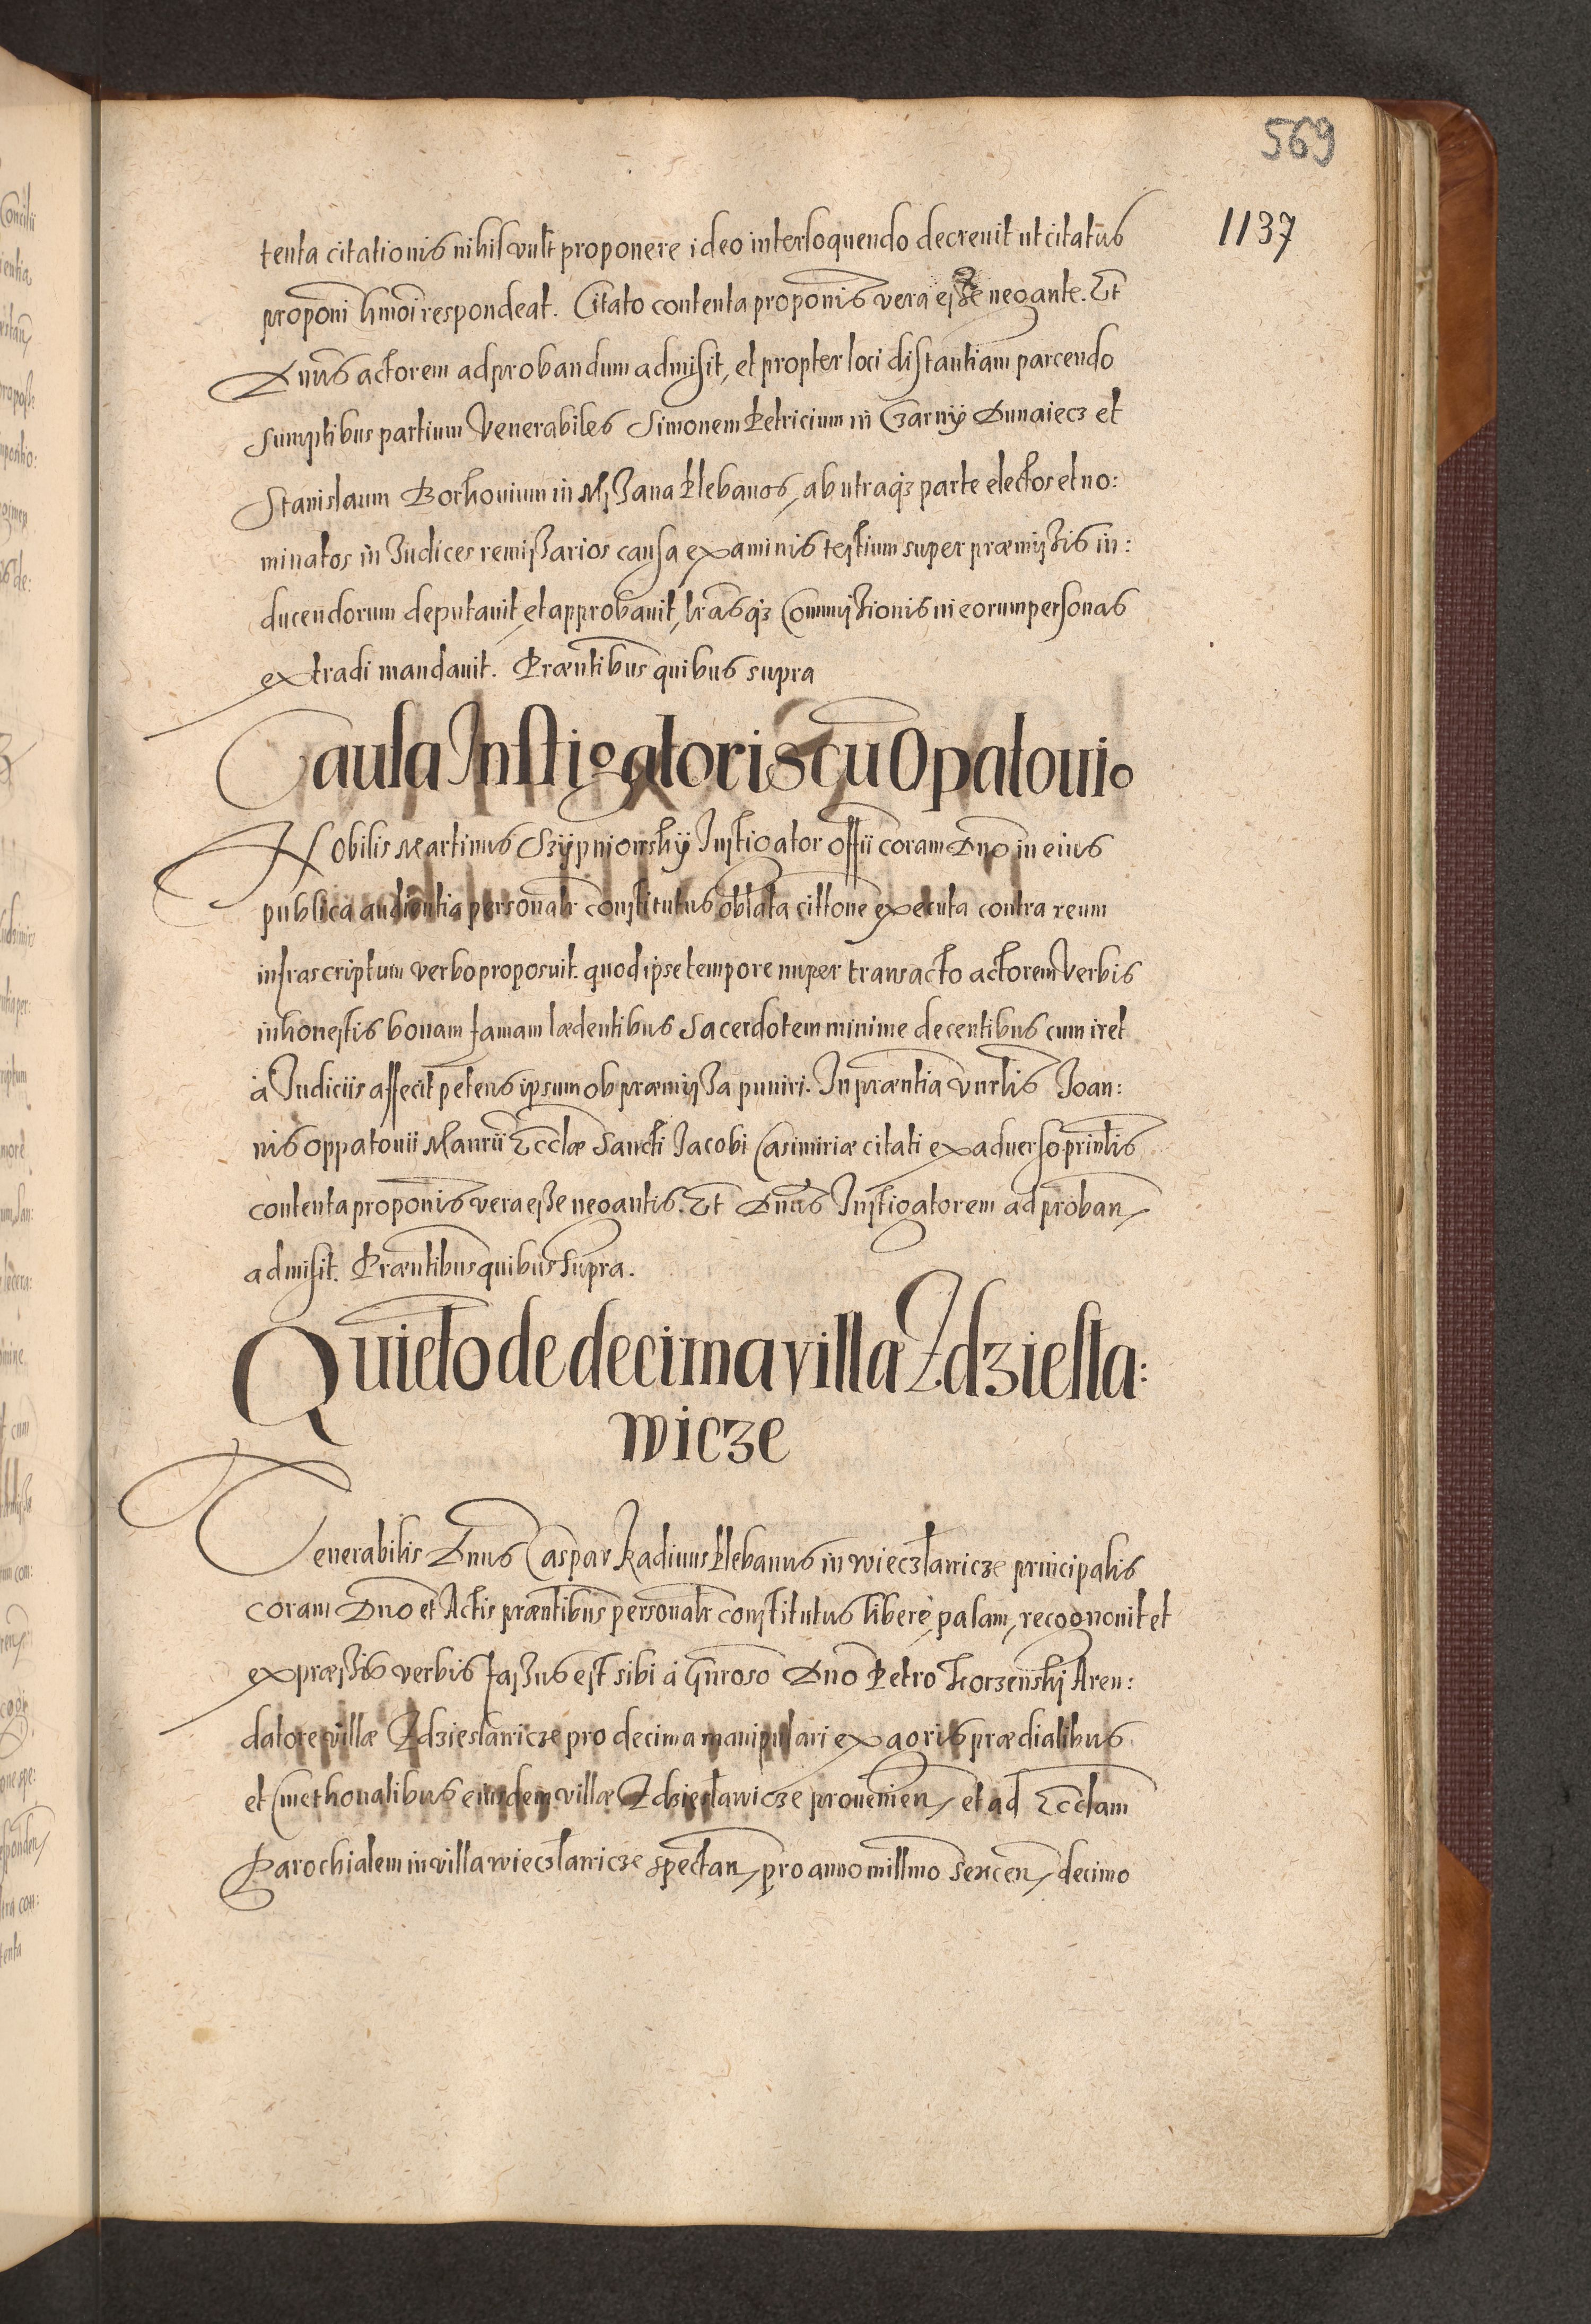 569
1137
tenta citationis nihil vult proponere ideo interloquendo decreuit ut citatus
proponi hmoi respondeat. Citato contenta proponis vera esse negante. Et
Dnus actorem ad probandum admisit, et propter loci distantiam parcendo
sumptibus partium Venerabiles Simonem Petricium in Czarny Dunaiecz et
Stanislaum Borhouium in Mszana Plebanos, ab utraqz parte electos et no:
minatos in Judices remissarios causa examinis testium super præmissis in:
ducendorum deputauit, et approbauit, lrasqz Commissionis in eorum personas
extradi mandauit. Præntibus quibus supra
Causa Instigatoris cu Opatouio
Nobilis Martinus Szypniowsky Instigator offii coram Dno in eius
publica audientia personalr constitutus oblata cittone executa contra reum
infrascriptum verbo proposuit. quod ipse tempore nuper transacto actorem verbis
inhonestis bonam famam lædentibus Sacerdotem minime decentibus cum iret
à Judiciis affecit petens ipsum ob præmissa puniri. In præntia vnrlis Joan:
nis Oppatouii Manrii Ecclæ Sancti Jacobi Casimiriæ citati ex aduerso printis
contenta proponis vera esse negantis. Et Dnus Instigatorem ad proban
admisit. Præntibus quibus supra.
Quieto de decima villa Zdziesła:
wicze
Venerabilis Dnus Caspar Kadiuus Plebanus in Wieczławicze principalis
coram Dno et Actis præntibus personalr constitutus liberè, palam, recognouit et
expræssis verbis fassus est sibi à Gnroso Dno Petro Korzensky Aren:
datore villæ Zdziesławicze pro decima manipulari ex agris prædialibus
et Cmethonalibus eiusdem villæ Zdziesławicze prouenien, et ad Ecclam
Parochialem in villa Wieczławicze spectan, pro anno millmo sexcen, decimo